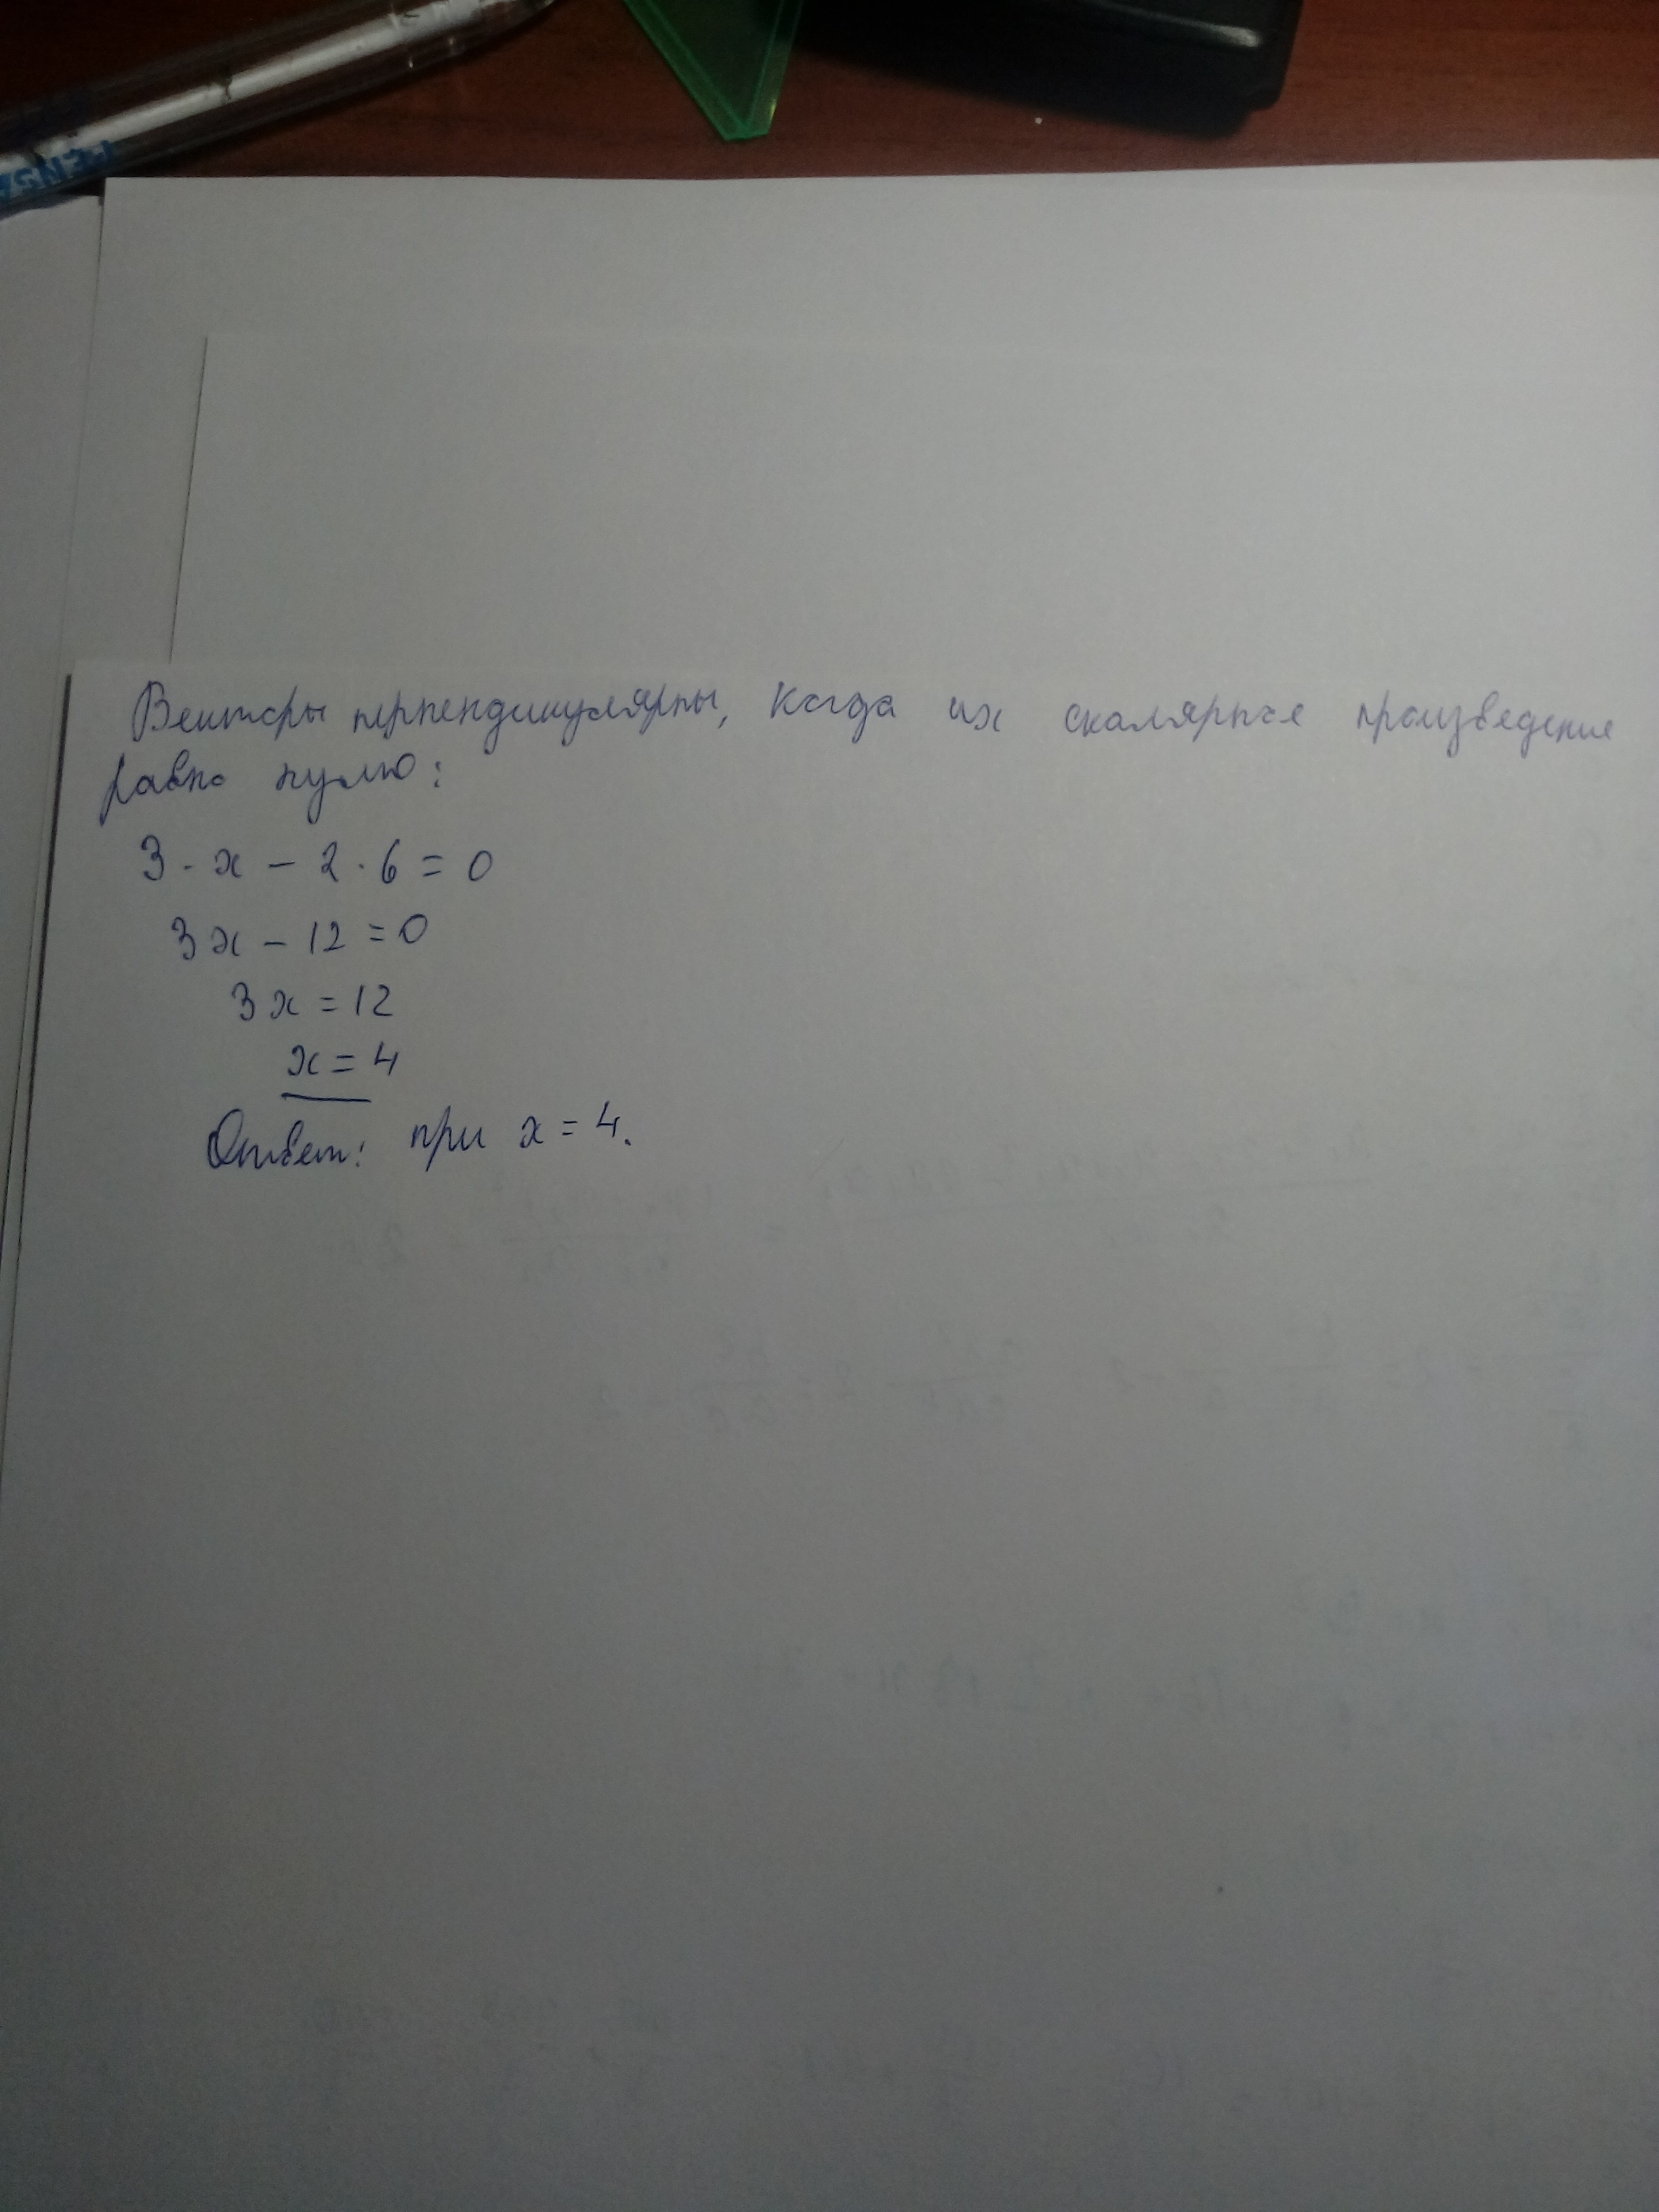 Векторы перпендикулярны, когда их скалярное произведение
равно нулю:
3 · x - 2 · 6 = 0
3x - 12 = 0
3x = 12
x = 4
Ответ: при x = 4.